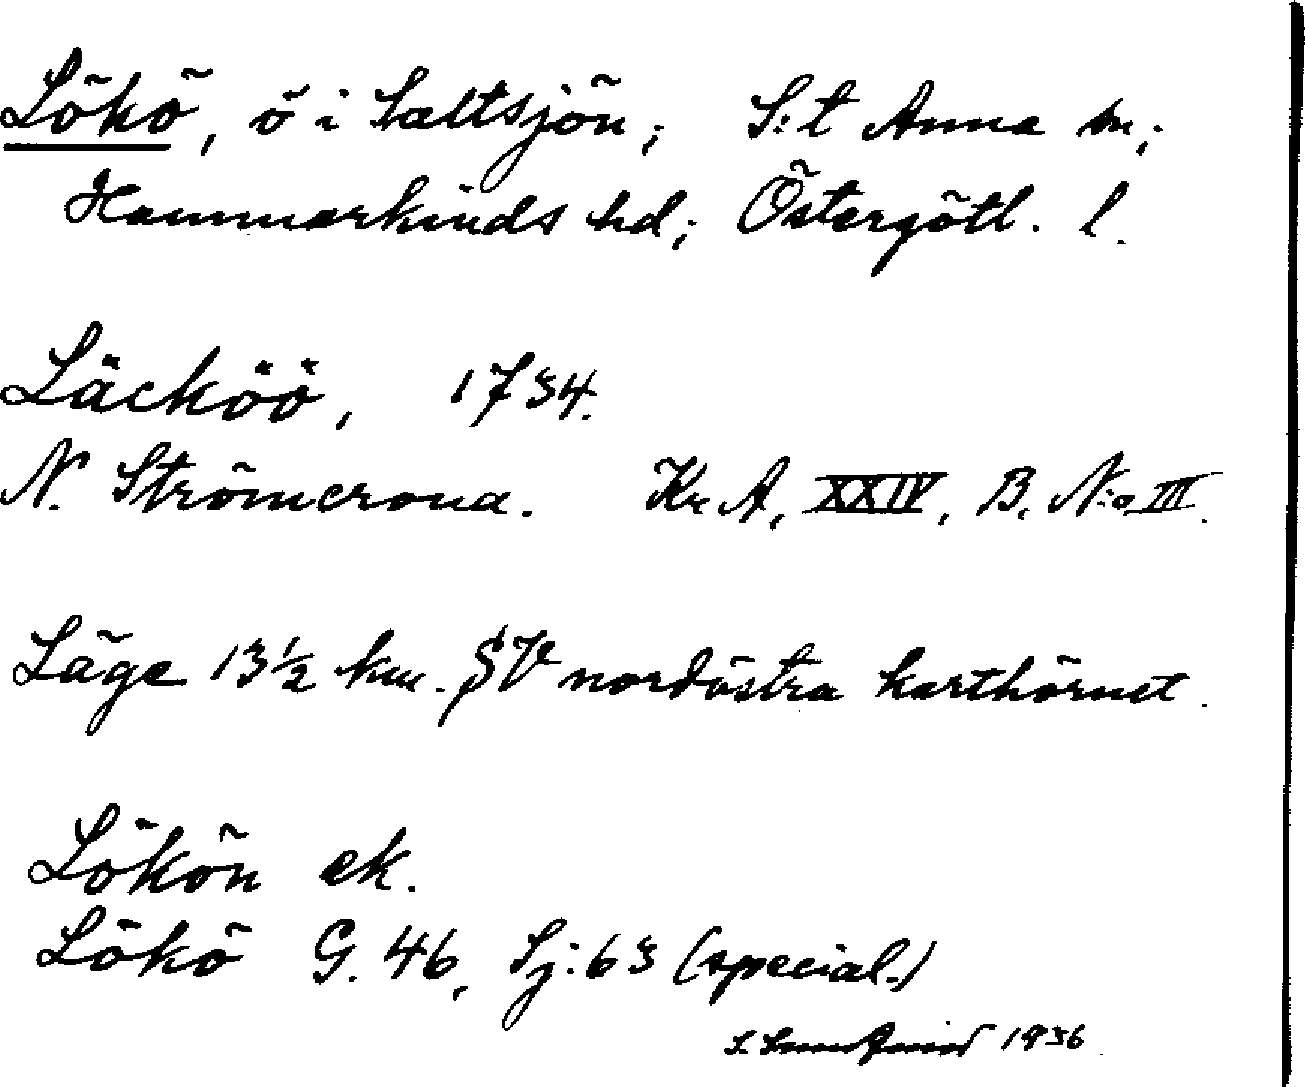 Lökö, ö i Saltsjön; S:t Anna sn;
Hammarkinds hd; Östergötl. l.
Läcköö, 1734.
N. Strömcrona. Kr. A, XXIV, B, N:o III.
Läge 13½ km. SV nordöstra karthörnet.
Lökön ek.
Lökö G. 46, Sj: 63 (special.)
S. 1936